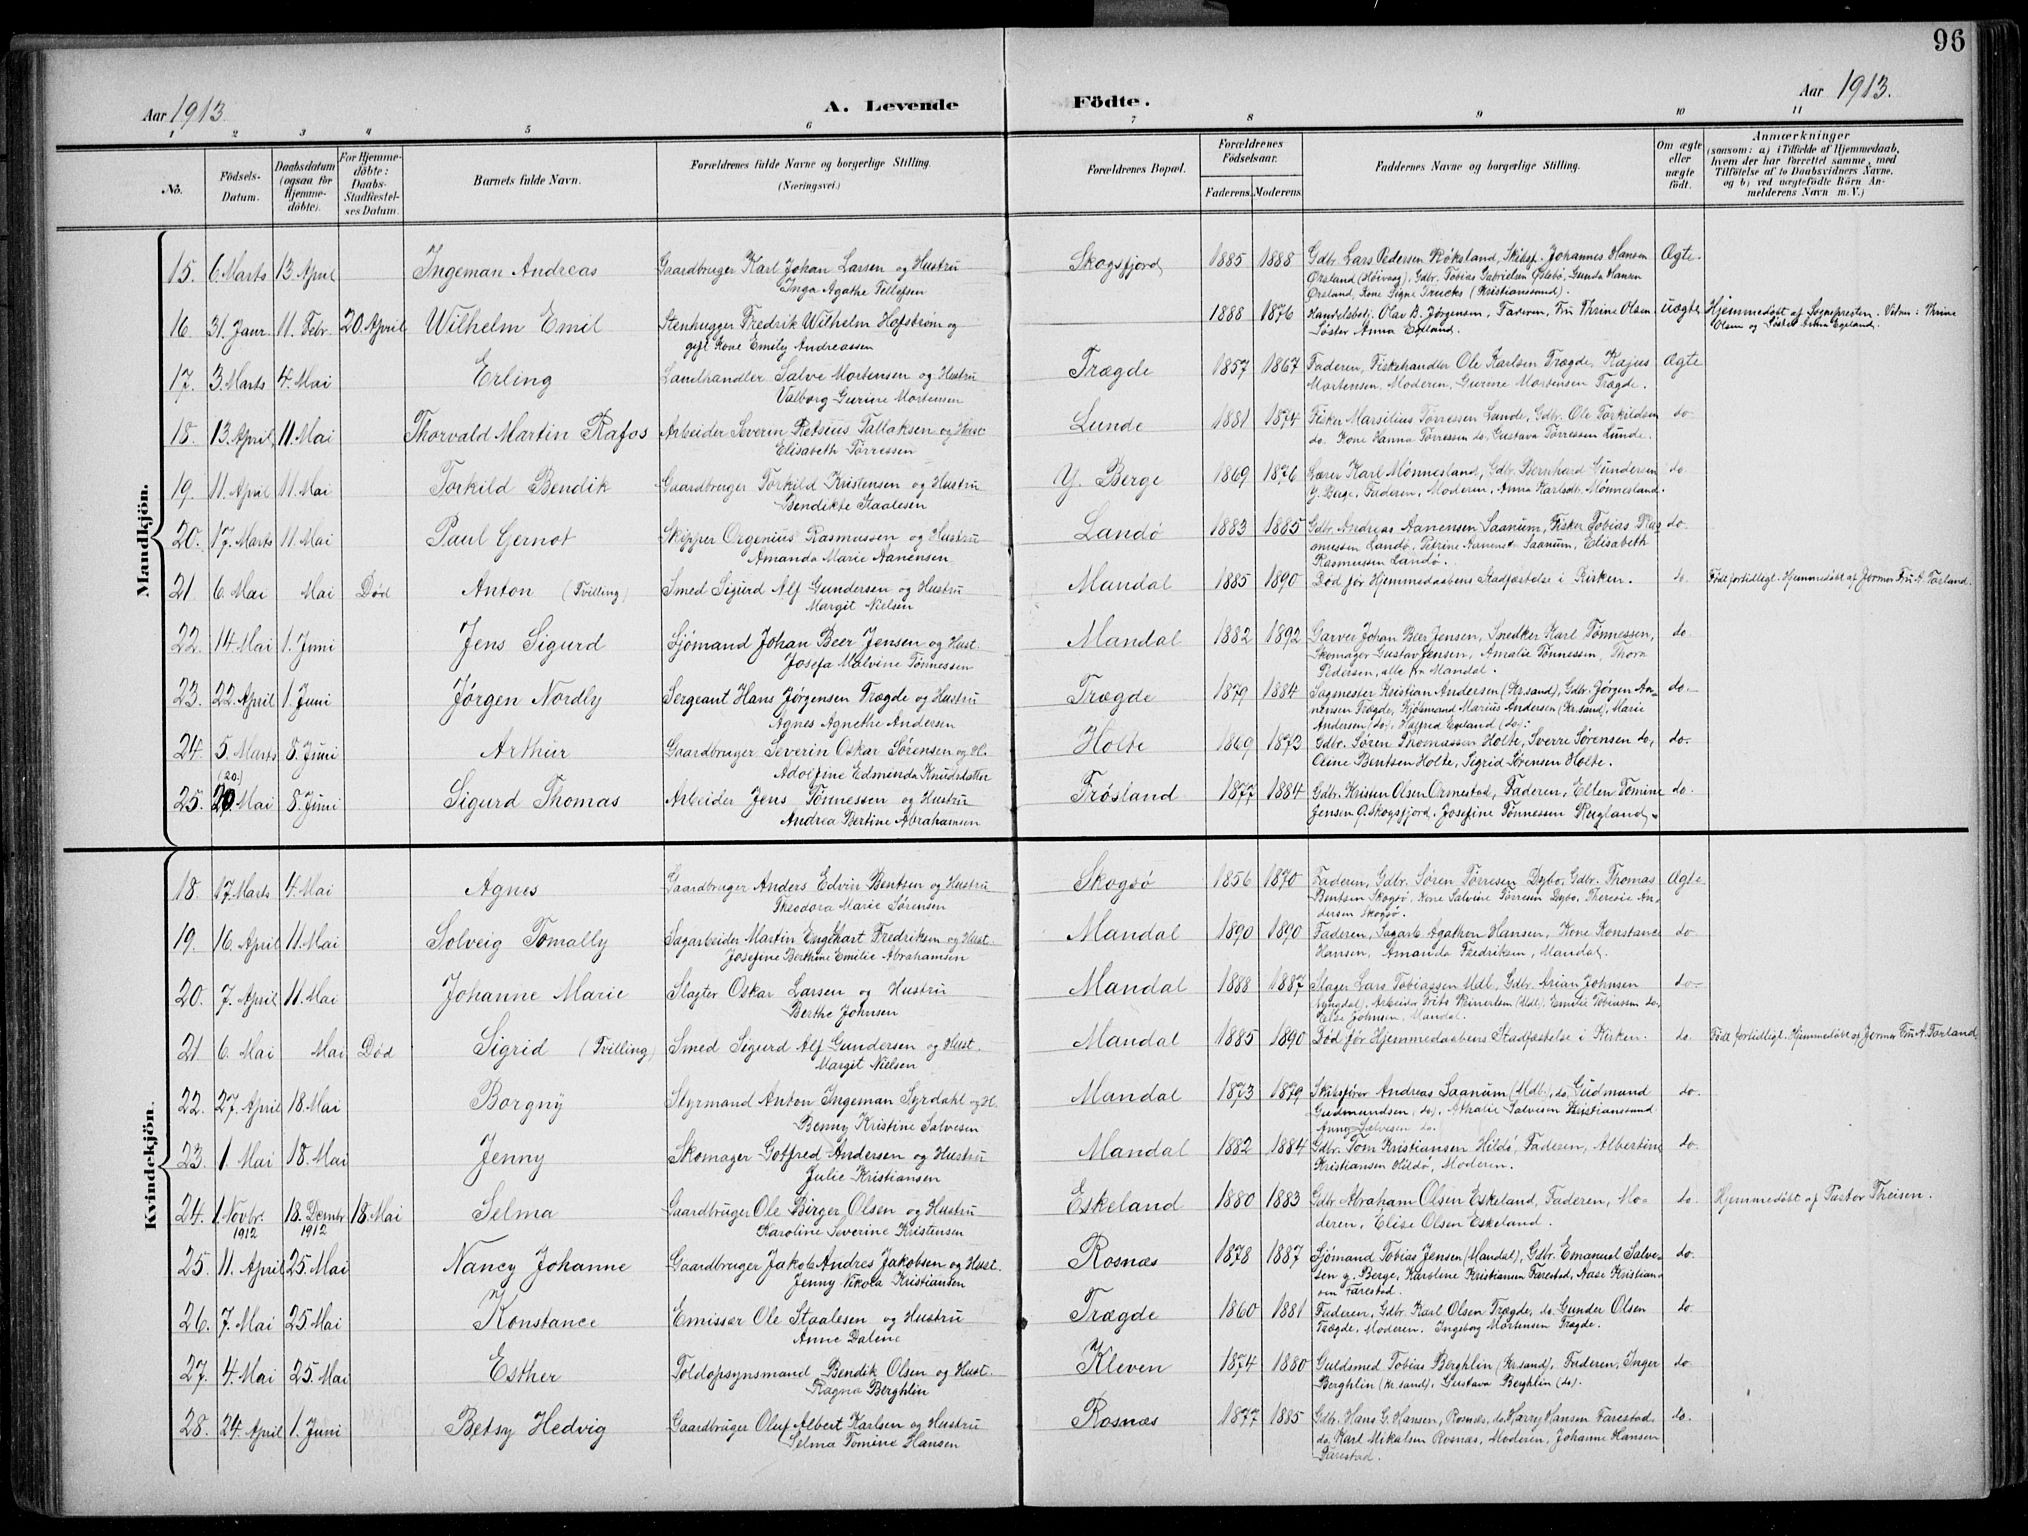 96
Aar 1913. A. Levende Födte. Aar 1913.
1 2 3 4 5 6 7 8 9 10 11
No. Födsels-Datum. Daabsdatum (ogsaa for Hjemme-döbte). For Hjemme-döbte: Daabs-Stadfæstel-ses Datum. Barnets fulde Navn. Forældrenes fulde Navne og borgerlige Stilling. (Næringsvei.) Forældrenes Bopæl. Forældrenes Födselsaar. Faderens. Moderens. Faddernes Navne og borgerlige Stilling. Om ægte eller uægte födt. Anmærkninger (saasom: a) i Tilfælde af Hjemmedaab, hvem der har forrettet samme, med Tilföielse af to Daabsvidners Navne, og b) ved uægtefödte Börn An-melderens Navn m. V.)
Mandkjön.
15. 6. Marts 13. April Ingeman Andreas Gaardbruger Karl Johan Larsen og Hustru Skogsfjord 1885 1888 Gdb. Lars Pedersen Röksland, Skibsf. Johannes Hansen Ægte.
Inga Agathe Tellefsen Øresland (Höivaag), Gdbr. Tobias Gabrielsen Øslebø, Gunda Hansen
Øresland, Kone Signe Trucks (Kristianssand).
16. 31. Janr. 11. Febr. 20. April Wilhelm Emil Stenhugger Fredrik Wilhelm Hofstrøm og 1888 1876 Handelsbetj. Olav B. Jørgensen, Faderen, Fru Thrine Olsen, uægte Hjemmedöbt af Sognepresten. Vidner: Thrine
gift Kone Emily Andreassen Søster Anna Egeland. Olsen og Søster Anna Egeland.
17. 3. Marts 4. Mai Erling Landhandler Salve Mortensen og Hustru Trægde 1857 1867 Faderen, Fiskehandler Ole Karlsen Trægde, Kajus Ægte
Valborg Gurine Mortensen Mortensen, Moderen, Gurine Mortensen Trægde.
18. 13. April 11. Mai Thorvald Martin Rafos Arbeider Severin Retsius Tallaksen og Hust Lunde 1881 1874 Fisker Marsilius Tørressen Lunde, Gdbr. Ole Torkildsen do
Elisabeth Tørressen do. Kone Hanna Tørressen do, Gustava Tørressen Lunde.
19. 11. April 11. Mai Torkild Bendik Gaardbruger Torkild Kristensen og Hustru Y. Berge 1869 1876 Lærer Karl Mønnesland, Gdb. Bernhard Gundersen do.
Bendikte Staalesen Y. Berge, Faderen, Moderen, Anna Karlsdtr. Mønnesland.
20. 17. Marts 11. Mai Paul Gernot Skipper Orgenius Rasmussen og Hustru Landø 1883 1885 Gdb. Andreas Aanensen Saanum, Fisker Tobias Ras do.
Amanda Marie Aanensen mussen Landø, Petrine Aanensen Saanum, Elisabeth
Rasmussen Landø.
21 6. Mai Mai Død Anton (Tvilling) Smed Sigurd Alf Gundersen og Hustru Mandal 1885 1890 Død før Hjemmedaabens Stadfæstelse i Kirken. do. Født fortidligt. Hjemmedøbt af Jormor Fru A. Torland.
Margit Nielsen
22. 14. Mai 1. Juni Jens Sigurd Sjømand Johan Beer Jensen og Hust. Mandal 1882 1892 Garver Johan Beer Jensen, Snedker Karl Tønnessen, do
Josefa Malvine Tønnessen Skomager Gustav Jensen, Amalie Tønnessen, Thora
Pedersen, alle fra Mandal.
23. 22. April 1. Juni Jørgen Nordly Sergeant Hans Jørgensen Trægde og Hustru Trægde 1879 1884 Sagmester Kristian Andersen (Kr.sand), Gdb. Jørgen Aa- do.
Agnes Agnethe Andersen nensen Trægde, Sjømand Marius Andersen (Kr.sand), Marie
Andersen (do), Halfrid Egeland (do).
24. 5. Marts 8. Juni Arthur Gaardbruger Severin Oskar Sørensen og H. Holte 1869 1873 Gdb. Søren Thomassen Holte, Sverre Sørensen do, do.
Adolfine Edminda Knudsdatter Oline Bentsen Holte, Sigrid Sørensen Holte.
25. (20.) 20 Mai 8. Juni Sigurd Thomas Arbeider Jens Tønnessen og Hustru Frøsland 1877 1884 Gdb. Kristen Olsen Ormestad, Faderen, Ellen Tomine do.
Andrea Bertine Abrahamsen Jensen Skogsfjord, Josefine Tønnessen Rugland.
Kvindekjön.
18. 17. Marts 4. Mai Agnes Gaardbruger Anders Edvin Bentsen og Hustru Skogsø 1856 1870 Faderen, Gdbr. Søren Tørresen Dybo, Gdbr. Thomas Ægte
Theodora Marie Sørensen Bentsen Skogsø, Kone Salvine Tørresen Dybo, Theresie An
dersen Skogsø.
19. 16. April 11. Mai Solveig Tomally Sagarbeider Martin Engehart Fredriksen og Hust. Mandal 1890 1890 Faderen, Sagarb. Agathon Hansen, Kone Konstance do
Josefine Berthine Emilie Abrahamsen Hansen, Amanda Fredriksen, Mandal.
20. 7. April 11. Mai Johanne Marie Slagter Oskar Larsen og Hustru Mandal 1888 1887 Slager Lars Tobiassen Mdl, Gdb. Arian Johnsen do
Berthe Johnsen Lyngdal. Arbeider Frits Reinertsen (Mdl), Emilie Tobiassen do,
Else Johnsen, Mandal.
21 6. Mai Mai Død Sigrid (Tvilling) Smed Sigurd Alf Gundersen og Hust. Mandal 1885 1890 Død før Hjemmedaabens Stadfæstelse i Kirken. do. Født fortidligt. Hjemmedøbt af Jormor Fru A. Torland.
Margit Nielsen
22. 27. April 18. Mai Borgny Styrmand Anton Ingeman Syrdahl og H. Mandal 1873 1879 Skibsfører Andreas Saanum (Mdl), do, Gudmund do.
Benny Kristine Salvesen Gudmundsen, do, Athalie Salvesen Kristianssand
Anny Salvesen do.
23. 1. Mai 18. Mai Jenny Skomager Gotfred Andersen og Hustru Mandal 1882 1884 Gdb. Tom Kristiansen Hildø, Faderen, Albertine do.
Julie Kristiansen Kristiansen Hildø, Moderen.
24. 1. Novbr. 1912 18. Decmbr 1912 18. Mai Selma Gaardbruger Ole Birger Olsen og Hustru Eskeland 1880 1883 Gdb. Abraham Olsen Eskeland, Faderen, Mo- do. Hjemmedöbt af Pastor Theisen.
Karoline Severine Kristensen deren, Elise Olsen Eskeland.
25. 11. April 25. Mai Nancy Johanne Gaardbruger Jakob Andres Jakobsen og Hust. Rosnæs 1878 1887 Sjömand Tobias Jensen (Mandal), Gdbr. Emanuel Salve- do.
Jenny Nkola Kristiansen sen y. Berge, Karoline Kristiansen Farestad, Aase Kristian
sen Farestad.
26. 7. Mai 25. Mai Konstance Emissær Ole Staalesen og Hustru Trægde 1860 1881 Faderen, Gdb. Karl Olsen Trægde, do. Gunder Olsen do.
Anne Dalene Trægde, Moderen, Ingeborg Mortensen Trægde.
27. 4. Mai 25. Mai Esther Toldopsynsmand Bendik Olsen og Hust. Kleven 1874 1880 Guldsmed Tobias Berghlin (Kr.sand), Faderen, Inger do.
Ragna Berghlin Berghlin (Kr.sand), Gustava Berghlin (do).
28. 24. April 1. Juni Betsy Hedvig Gaardbruger Oluf Albert Karlsen og Hustru Rosnæs 1877 1885 Gdb. Hans G. Hansen, Rosnæs, do. Harry Hansen Farestad, do.
Selma Tomine Hansen do. Karl Mikalsen Rosnæs, Moderen, Johanne Hansen
Farestad.